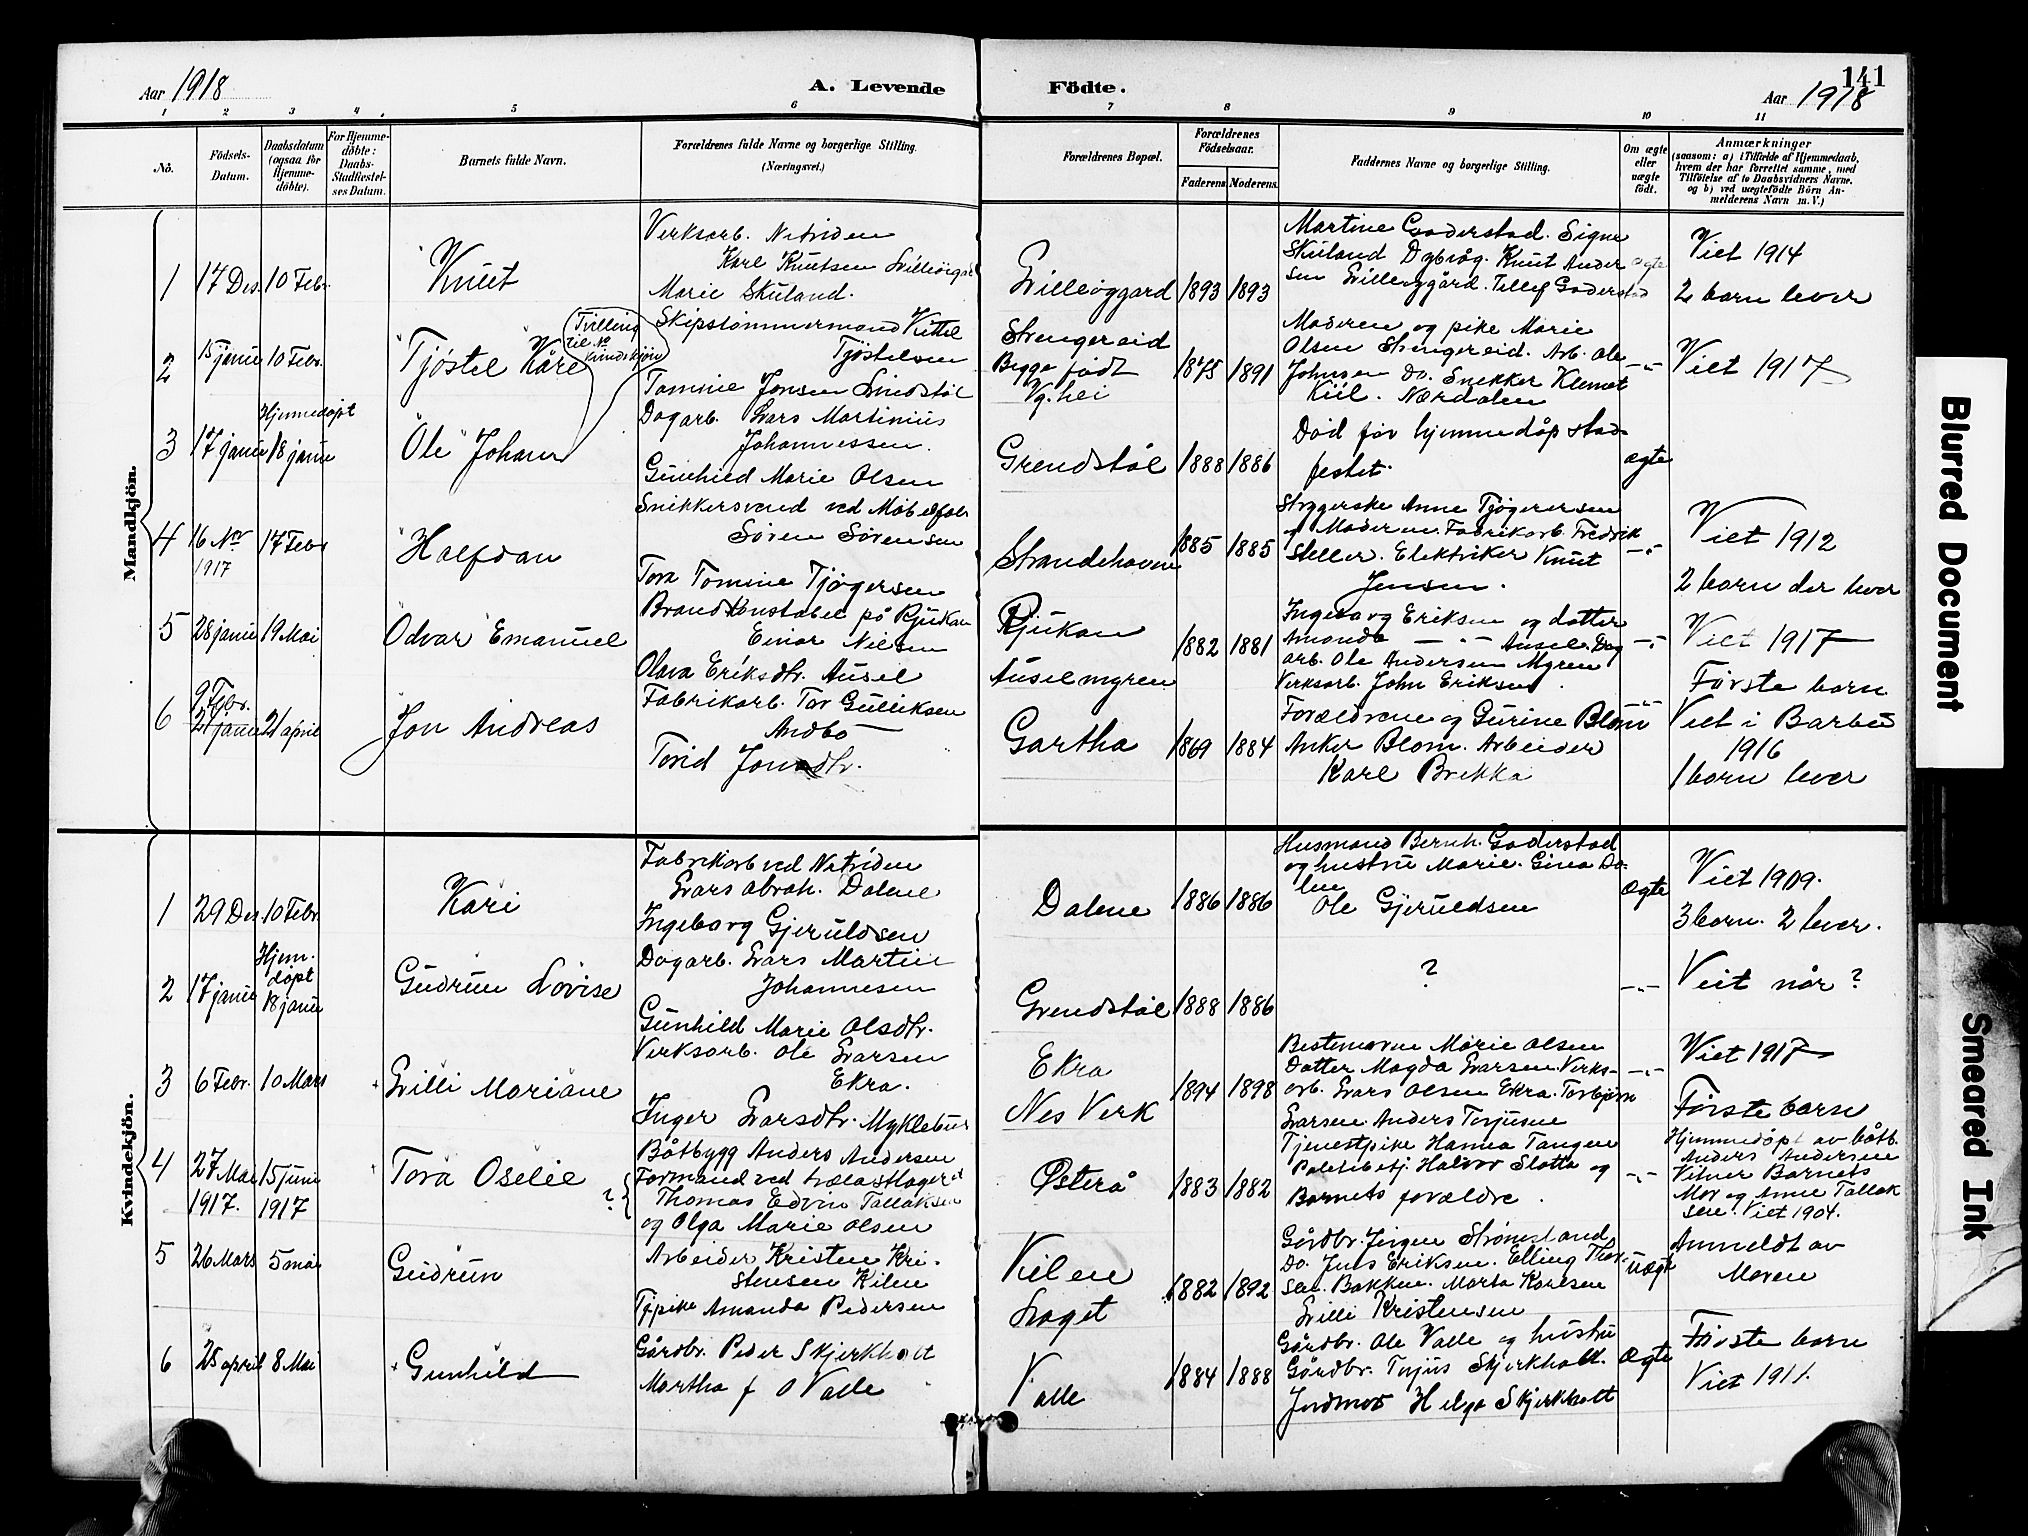 Aar 1918
A. Levende
Födte.
141
Aar 1918
1 2 3 4 5 6 7 8 9 10 11
No.
Födsels-
Datum.
Daabsdatum
(ogsaa for
Hjemme-
döbte).
For Hjemme-
döbte:
Daabs-
Stadfæstel-
ses Datum.
Barnets fulde Navn.
Forældrenes fulde Navne og borgerlige Stilling.
(Næringsvei.)
Forældrenes Bopæl.
Forældrenes
Födselsaar.
Faderens. Moderens.
Faddernes Navne og borgerlige Stilling.
Om ægte
eller
uægte
födt.
Anmærkninger
(saasom: a) i Tilfælde af Hjemmedaab,
hvem der har forrettet samme, med
Tilföielse af to Daabsvidners Navne.
og b) ved uægtefödte Börn An-
melderens Navn m. V.)
Mandkjön.
1 17 Des. 10 Febr. Knut
Verksarb. Nitriden
Karl Knutsen
Marie Skuland.
1893 1893
Martine Goderstad. Signe
Skuland Dybvåg. Knut Ander
sen Tellef Goderstad
ægte
Viet 1914
2 barn lever
2 15 janu 10 Febr. Tjöstel Kåre
Tvilling
til No
Kvindekjön
Skipstömmermand Kittel
Tjöstelsen
Tomine Jonsen Lindstöl
Strengereid
Begge födt
Vg.hei
1875 1891
Moderen og pike Marie
Olsen Strengereid. Arb. Ole
Johnsen Do. Snekker Klemet
Kiil. Nærdalen
-"-
Viet 1917
3 17 janu Hjemmedöpt 18 janu Ole Johan
Dagarb. Lars Martinius
Johannessen.
Gunhild Marie Olsen
Grendstöl 1888 1886
Död för hjemmedåp stad-
festet.
ægte
4 16 Nov 1917 17 Febr Halfdan
Snikkersvend ved Möbelfab.
Sören Sörensen
Tora Tomine Tjögersen
Strandehavene 1885 1885
Strygerske Anne Tjögersen
Moderen. Fabrikarb. Fredrik
Steller. Elektriker Knut
Jensen.
-"-
Viet 1912
2 barn der lever
5 28 janu 19 Mai Odvar Emanuel
Brandkonstabel på Rjukan
Einar Nilsen
Olava Eriksdtr. Ausel
Rjukan
Auselmyren
1882 1881
Ingeborg Eriksen og datter
Amanda — " — Ausel. Dag
arb. Ole Andersen Myren
Verksarb. John Eriksen.
-"-
Viet 1917
Förste barn
6 9 Febr. 21 janu 21 april Jon Andreas
Fabrikarb. Tor Gulliksen
Andbö
Torid Jonsdtr.
Gartha 1869 1884
Forældrene og Gurine Blom
Anker Blom. Arbeider
Karl Brekka
-"-
Viet i Barbu
1916
1 barn lever
Kvindekjön.
1 29 Des 10 Febr. Kari
Fabrikarb ved Nitriden
Lars Abrah. Dalene
Ingeborg Gjeruldsen
Dalene 1886 1886
Husmand Bernh. Goderstad
og hustru Marie. Gina Da-
len
Ole Gjeruldsen
Ægte
Viet 1909.
3 barn. 2 lever.
2 17 janu Hjem.döpt 18 janu Gudrun Lovise
Dagarb. Lars Martin
Johannesen
Gunhild Marie Olsdtr.
Grendstöl 1888 1886
?
-"-
Viet når?
3 6 Febr. 10 Mars Lilli Mariane
Verksarb. Ole Larsen
Ekra.
Inger Larsdtr. Myklebust
Ekra
Nes Verk
1894 1898
Bestemoren Marie Olsen
Datter Magda Larsen. Verks-
arb. Lars Olsen Ekra. Torbjörn
Larsen. Anders Torjusen
-"-
Viet 1917
Förste barn
4 27 Mai 1917. 15 juni 1917 Tora Oselie
Båtbygg Anders Andersen
? Formand ved trælastlageret
Thomas Edvin Tallaksen
og Olga Marie Olsen
Østerå 1883 1882
Tjenestpike Hanna Tangen
Politibetj. Halvor Slotta og
Barnets forældre.
-"-
Hjemmedöpt av båtb.
Anders Andersen
Vitner Barnets
Mor og Anne Tallak
sen. Viet 1904.
5 26 Mars 5 mai Gudrun
Arbeider Kristen Kri-
stensen Kilen
Tjpike Amanda Pedersen
Kilen
Laget
1882 1892
Gårdbr. Jörgen Strömsland
Do. Jens Eriksen. Elling Thor
sen. Bakken. Marta Karlsen
Lilli Kristensen
uægte
Anmeldt av
Moren
6 25 april 8 Mai Gunhild
Gårdbr. Peder Skjerkholt
Martha f O Valle
Valle 1884 1888
Gårdbr. Ole Valle og hustru
Gårdbr. Torjus Skjerkholt.
Jordmor Helga Skjerkholt
Ægte
Förste barn
Viet 1911.
Blurred Document
Smeared Ink